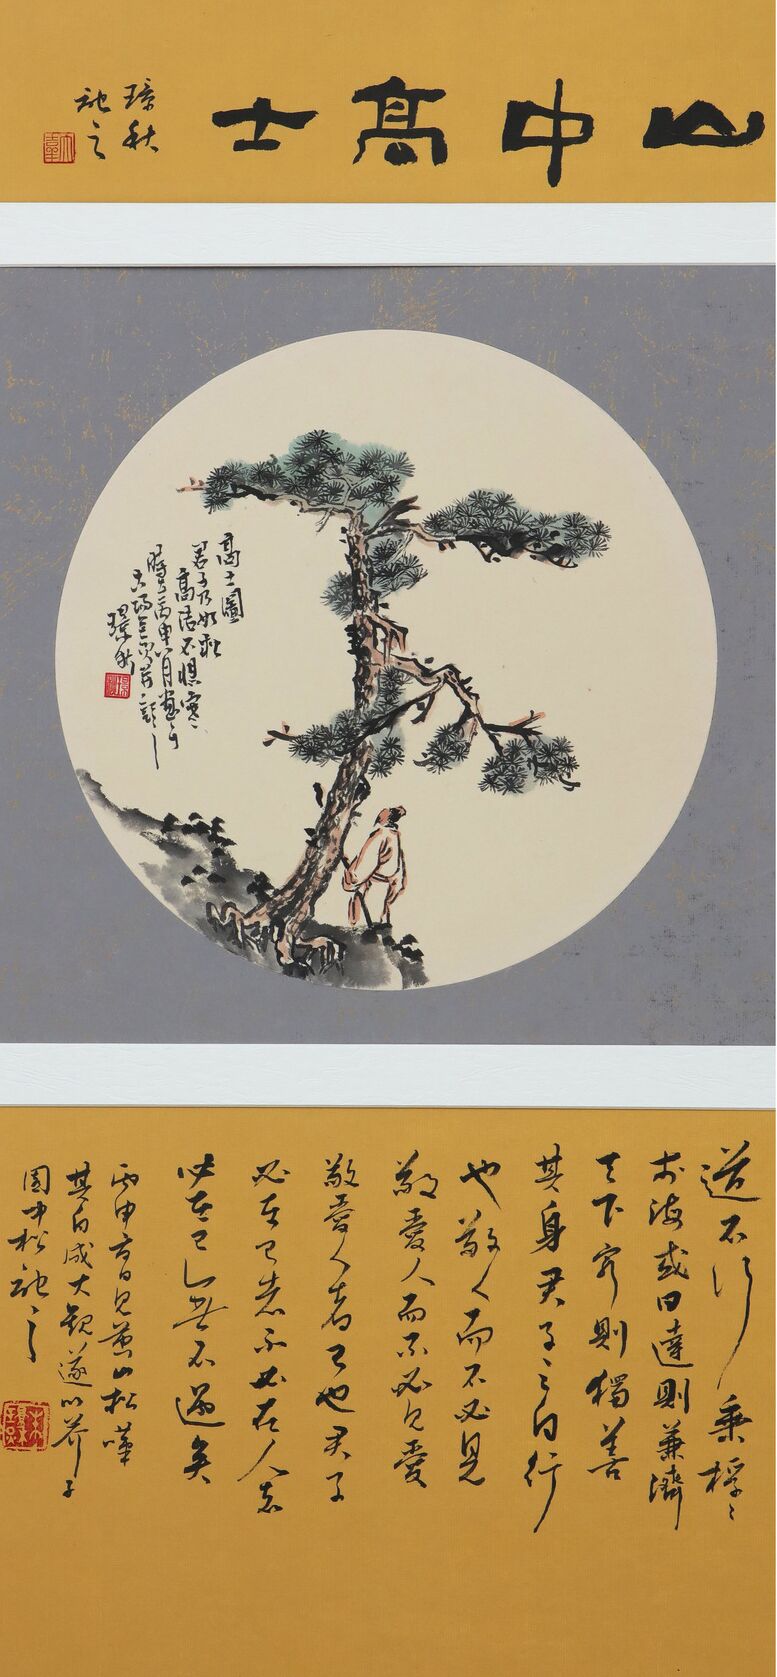 山中高士
璋秋
記之
高士圖
君子乃如松
高潔不懼寒
丙申八月畫於
道不行乘桴
於海或曰達則兼濟
天下窮則獨善
其身君子之自行
也敬人而不必見
敬愛人而不必見愛
敬愛人者己也君子
必在己者不必在人者
必在己
無不遂矣
丙申方日見黃山松嘆
其自成大觀遂以芥子
園中松記之